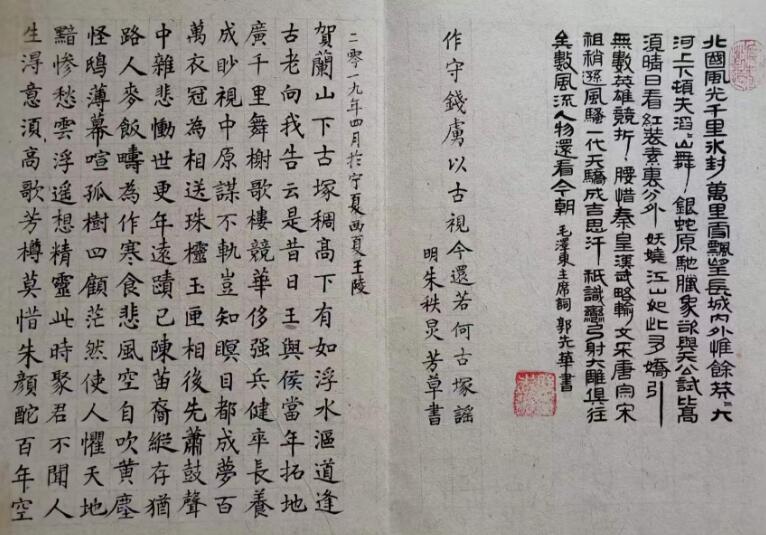 北國風光千里冰封萬里雪飄望長城內外惟餘莽〻大
河上下頓失滔〻山舞銀蛇原馳臘象欲與天公試比高
須晴日看紅裝素裹分外妖嬈江山如此多嬌引
無數英雄競折腰惜秦皇漢武略輸文采唐宗宋
祖稍遜風騷一代天驕成吉思汗祇識彎弓射大雕俱往
矣數風流人物還看今朝 毛澤東主席詞 郭先華書
作守錢虜以古視今還若何古塚謡
明朱秩炅芳草書
二零一九年四月於宁夏西夏王陵
賀蘭山下古塚稠高下有如浮水漚道逢
古老向我告云是昔日王與侯當年拓地
廣千里舞榭歌樓競華侈强兵健卒長養
成眇視中原謀不軌豈知瞑目都成夢百
萬衣冠為相送珠櫺玉匣相後先蕭鼓聲
中雜悲慟世更年遠蹟已陳苗裔縱存猶
路人麥飯疇為作寒食悲風空自吹黄塵
怪鴟薄暮喧孤樹四顧茫然使人懼天地
黯慘愁雲浮遥想精靈此時聚君不聞人
生得意須高歌芳樽莫惜朱顔酡百年空